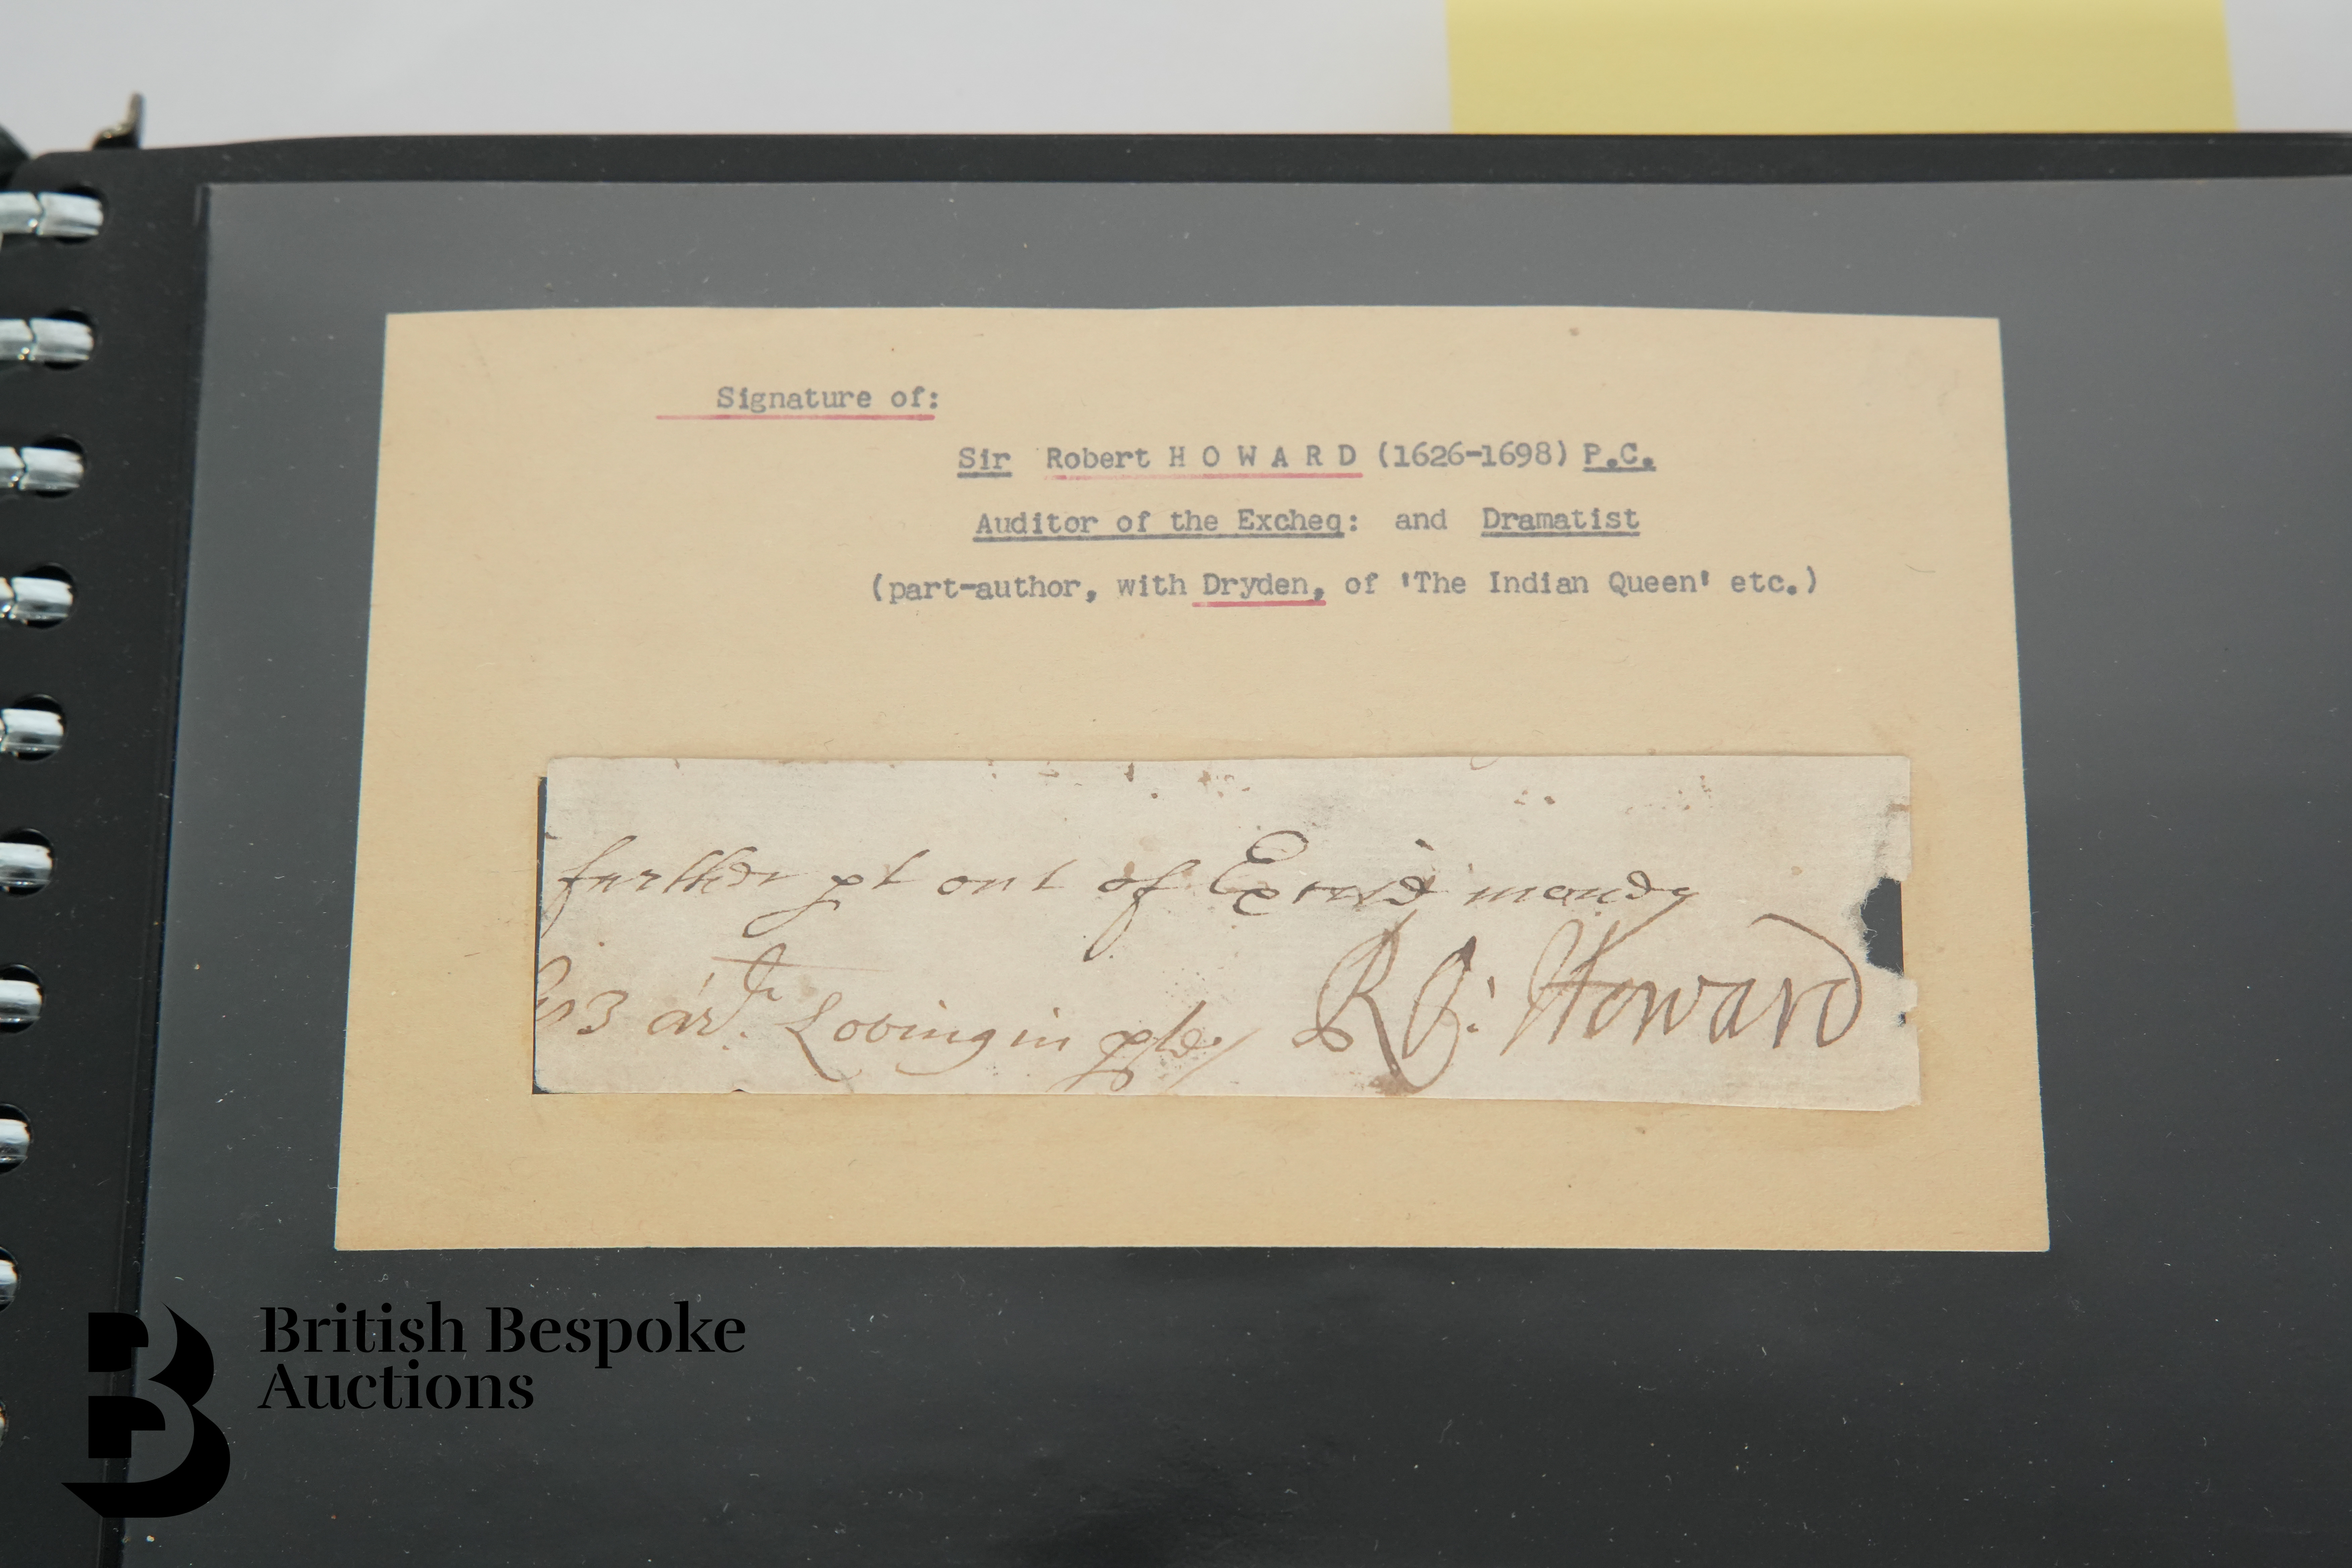 Signature of:
Sir Robert H O W A R D (1626-1698) P.C.
Auditor of the Excheq: and Dramatist
(part-author, with Dryden, of 'The Indian Queen' etc.)
further out of
Loving in Ro: Howard
British Bespoke
Auctions